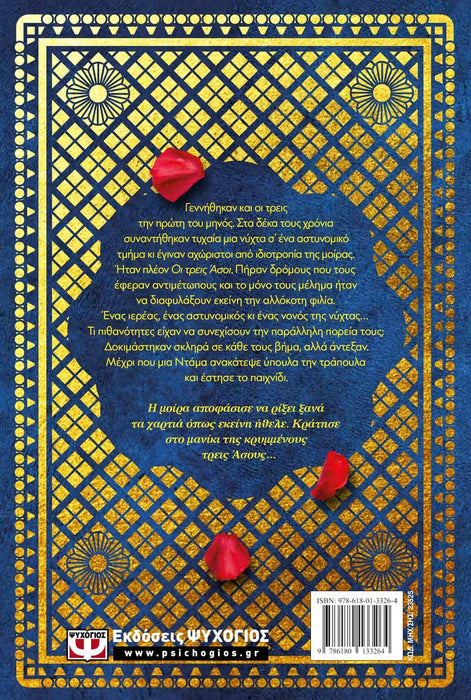 Γεννήθηκαν και οι τρεις
την πρώτη του μηνός. Στα δέκα τους χρόνια
συναντήθηκαν τυχαία μια νύχτα σ' ένα αστυνομικό
τμήμα κι έγιναν αχώριστοι από ιδιοτροπία της μοίρας.
Ήταν πλέον Οι τρεις Άσοι. Πήραν δρόμους που τους
έφεραν αντιμέτωπους και το μόνο τους μέλημα ήταν
να διαφυλάξουν εκείνη την αλλόκοτη φιλία.
Ένας ιερέας, ένας αστυνομικός κι ένας νονός της νύχτας...
Τι πιθανότητες είχαν να συνεχίσουν την παράλληλη πορεία τους;
Δοκιμάστηκαν σκληρά σε κάθε τους βήμα, αλλά άντεξαν.
Μέχρι που μια Ντάμα ανακάτεψε ύπουλα την τράπουλα
και έστησε το παιχνίδι.
Η μοίρα αποφάσισε να ρίξει ξανά
τα χαρτιά όπως εκείνη ήθελε. Κράτησε
στο μανίκι της κρυμμένους
τρεις Άσους...
ΨΥΧΟΓΙΟΣ
Εκδόσεις ΨΥΧΟΓΙΟΣ
www.psichogios.gr
ISBN: 978-618-01-3326-4
9 786180 133264
ΚΩΔ. ΜΗΧ/ΣΗΣ 23525